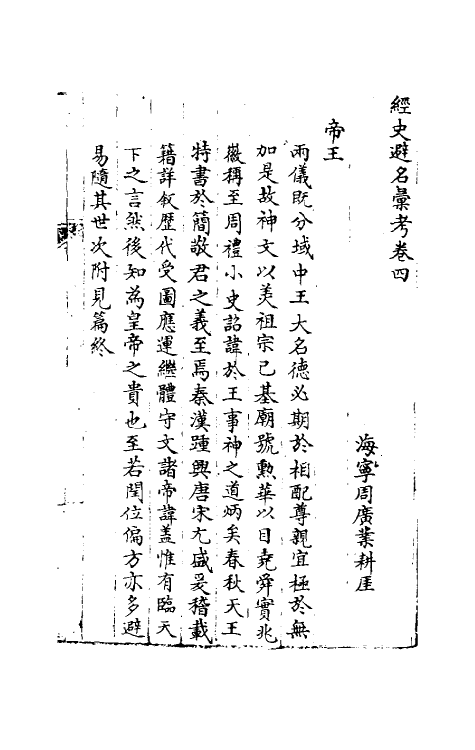 經史避名彙考卷四
海寧周廣業耕厓
帝王
兩儀既分域中王大名德必期於相配尊親宜極於無
加是故神文以美祖宗已基廟號勲華以目堯舜實兆
徽稱至周禮小史詔諱於王事神之道炳矣春秋天王
特書於簡敬君之義至焉秦漢踵興唐宋尢盛爰稽載
籍詳叙歴代受圖應運繼體守文諸帝諱盖惟有臨天
下之言然後知為皇帝之貴也至若閏位偏方亦多避
易隨其世次附見篇終